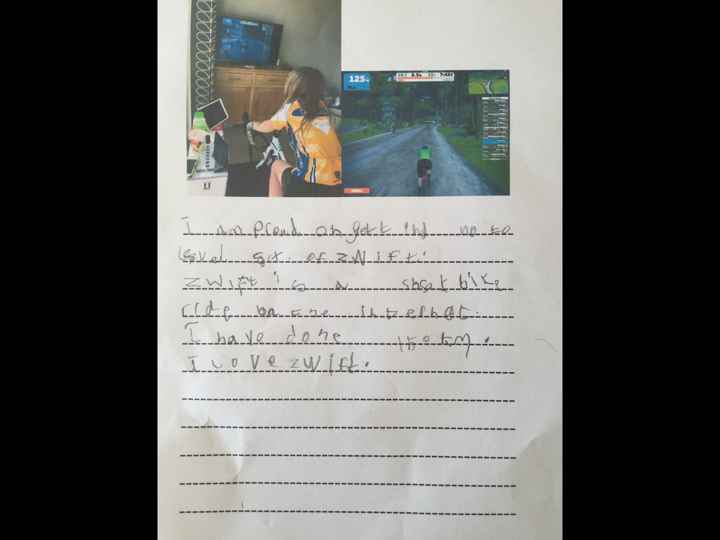 125
7:433
I am Proad on gett ind up to
level six of ZWift.
ZWift is a shost bike
ride on the internet.
I have done 140 km.
I love ZWift.